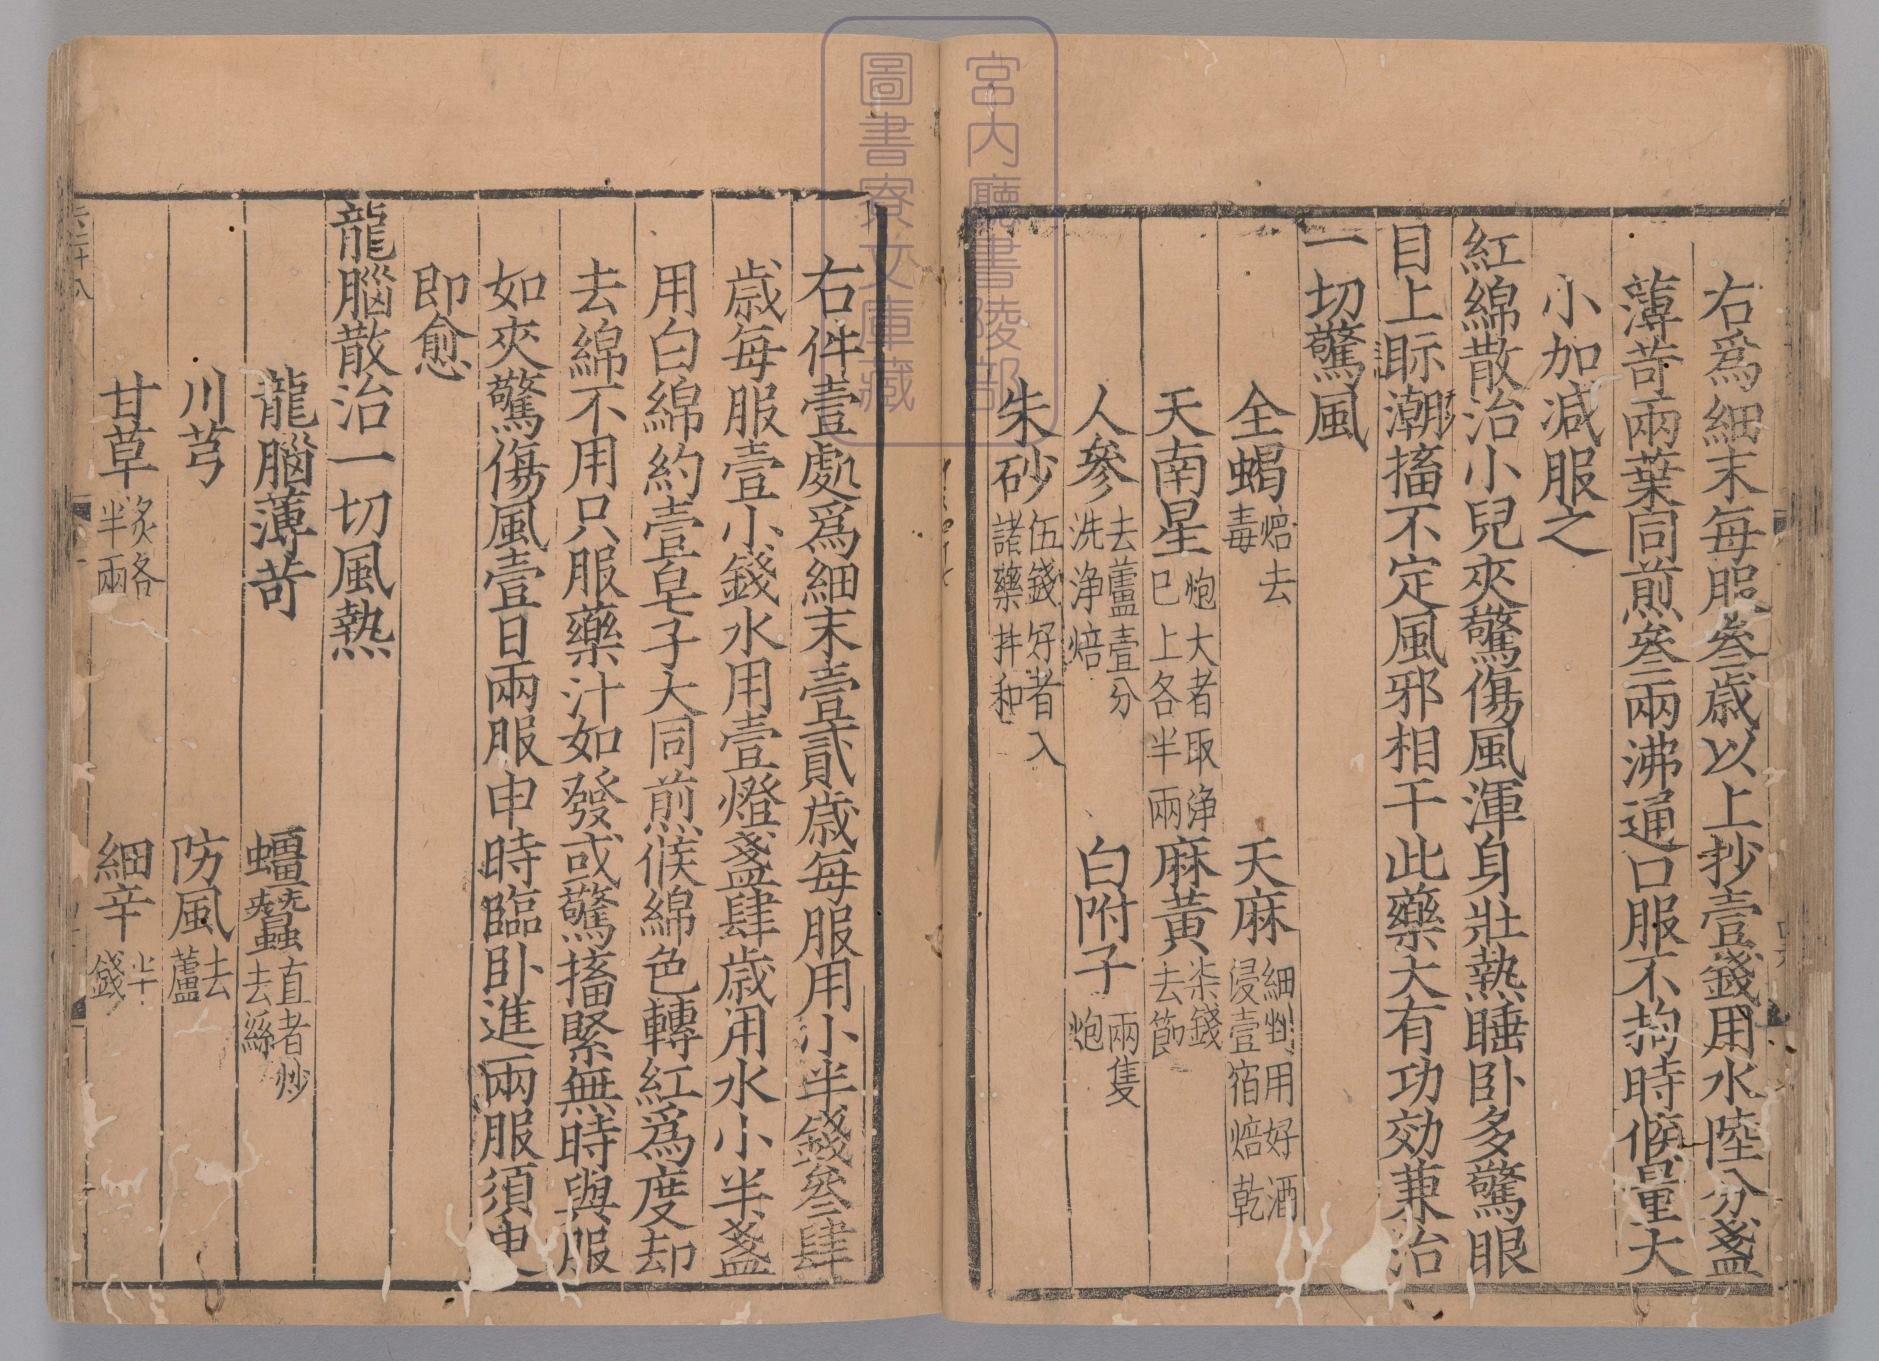 右爲細末每服叄歲以上抄壹錢用水陸分盞
薄苛兩葉同煎叄兩沸通口服不拘時候量大
小加減服之
紅綿散治小兒夾驚傷風渾身壯熱睡卧多驚眼
目上眎潮搐不定風邪相干此藥大有功効兼治
一切驚風
全蝎焙去毒 天麻細剉用好酒浸壹宿焙乾
天南星炮大者取浄巳上各半兩 麻黃柒錢去節
人參去蘆壹分洗浄焙 白附子兩隻炮
朱砂伍錢好者入諸藥拌和
右件壹處爲細末壹貳歲每服用小半錢叄肆
歲每服壹小錢水用壹燈盞肆歲用水小半盞
用白綿約壹皂子大同煎候綿色轉紅爲度却
去綿不用只服藥汁如發或驚搐緊無時與服
如夾驚傷風壹日兩服申時臨卧進兩服須臾
即愈
龍腦散治一切風熱
龍腦薄苛 蠮蠶直者炒去絲
川芎 防風去蘆
甘草炙各半兩 細辛半錢
宮内廳書陵部
圖書寮文庫藏